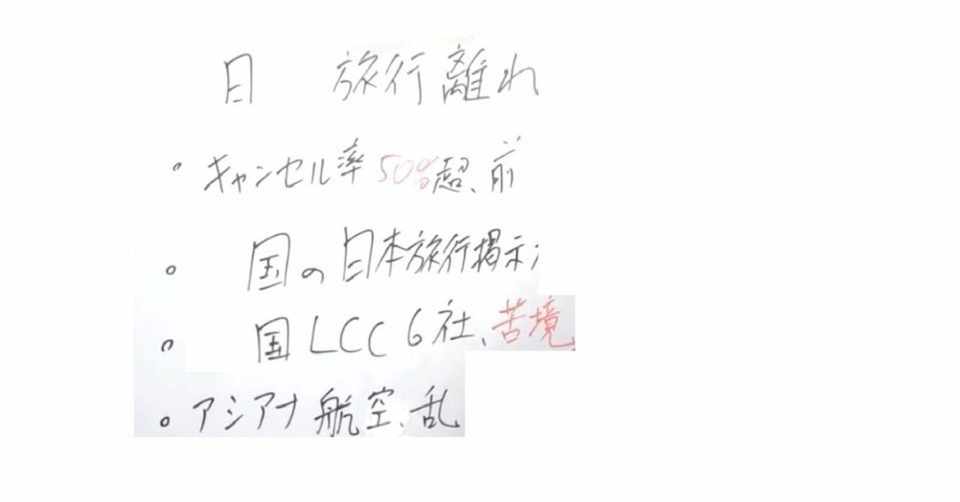 日 旅行離れ
。キャンセル率50%超、前
。国の日本旅行掲示
。国LCC6社、苦境
。アシアナ航空、乱